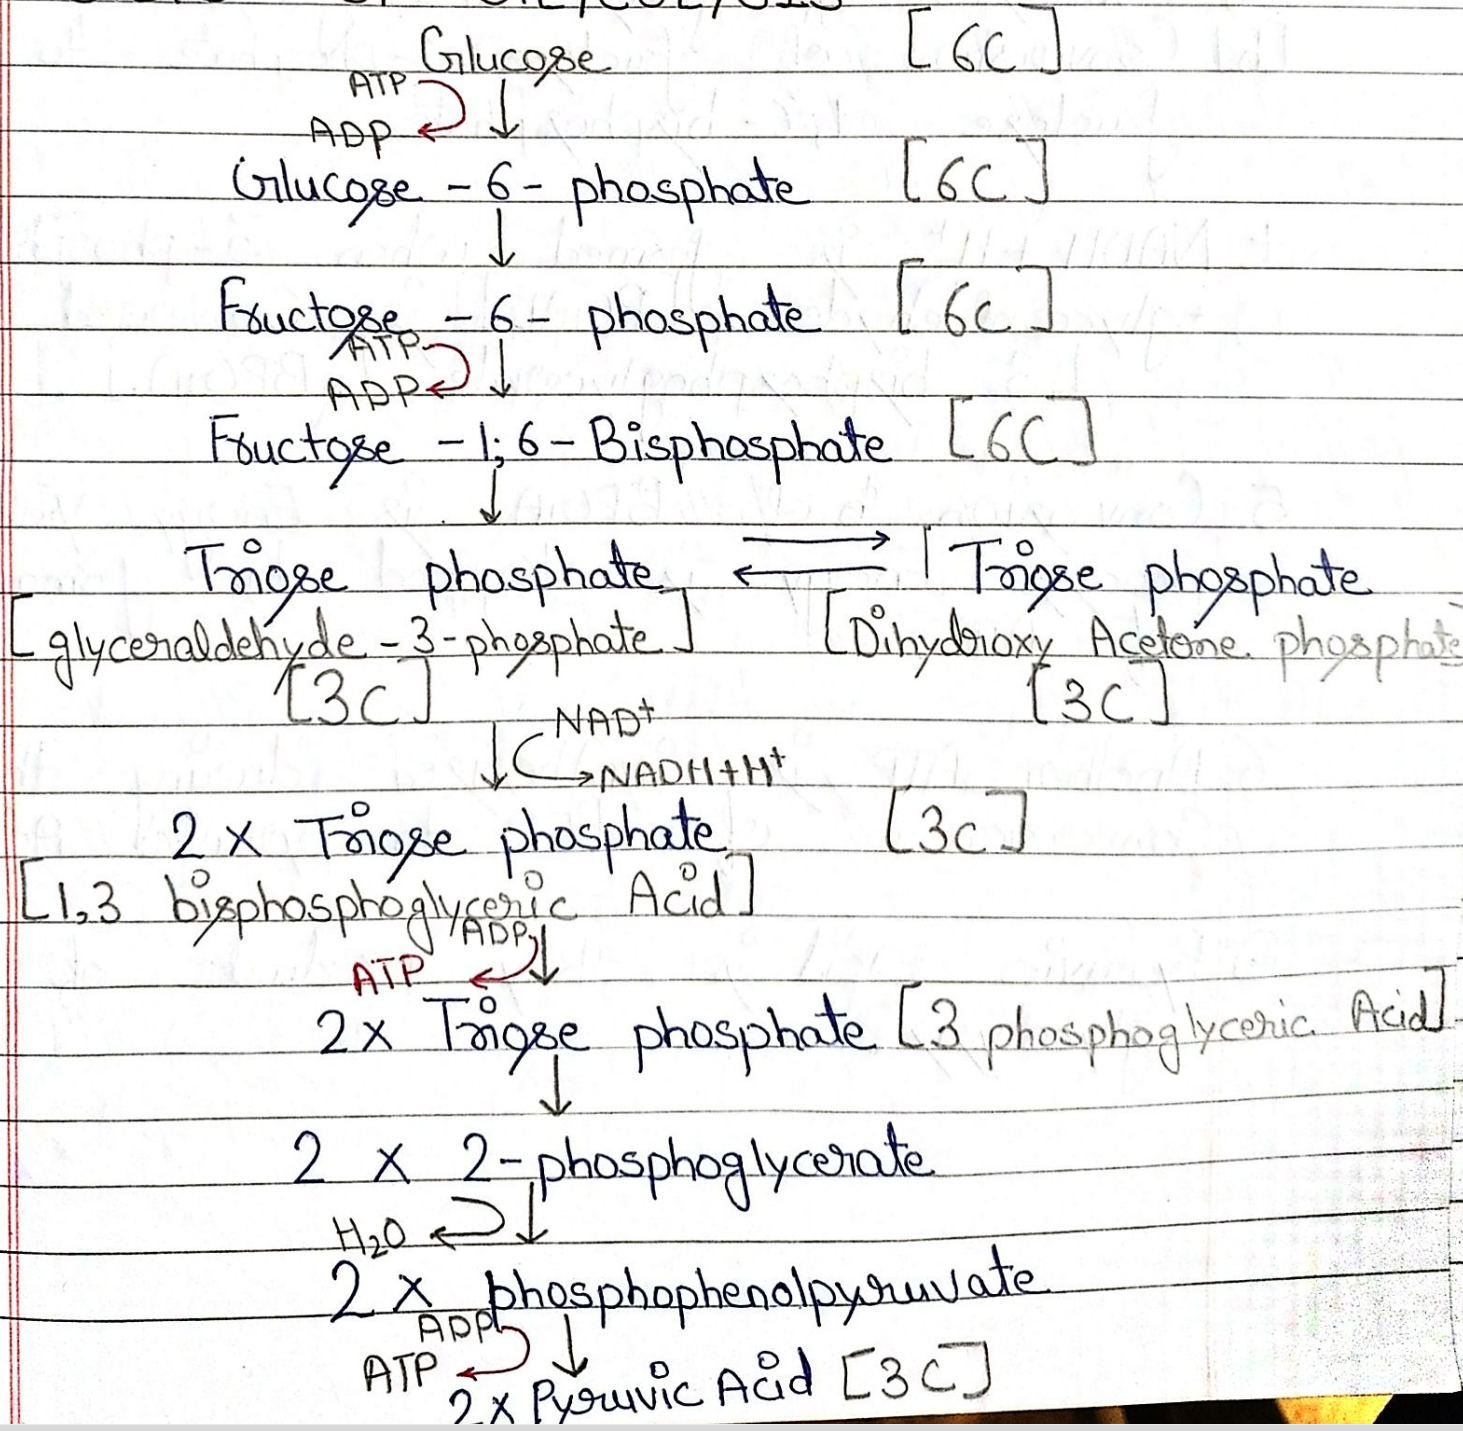 Glucose [6C]
ATP
ADP
Glucose - 6 - phosphate [6C]
Fructose - 6 - phosphate [6C]
ATP
ADP
Fructose - 1; 6 - Bisphosphate [6C]
Triose phosphate ⇌ Triose phosphate
[glyceraldehyde - 3 - phosphate] [Dihydroxy Acetone phosphate
[3C] [3C]
NAD+
NADH+H+
2 x Triose phosphate [3C]
[1,3 bisphosphoglyceric Acid]
ADP
ATP
2x Triose phosphate [3 phosphoglyceric Acid]
2 x 2-phosphoglycerate
H2O
2 x phosphophenolpyruvate
ADP
ATP
2 x Pyruvic Acid [3C]